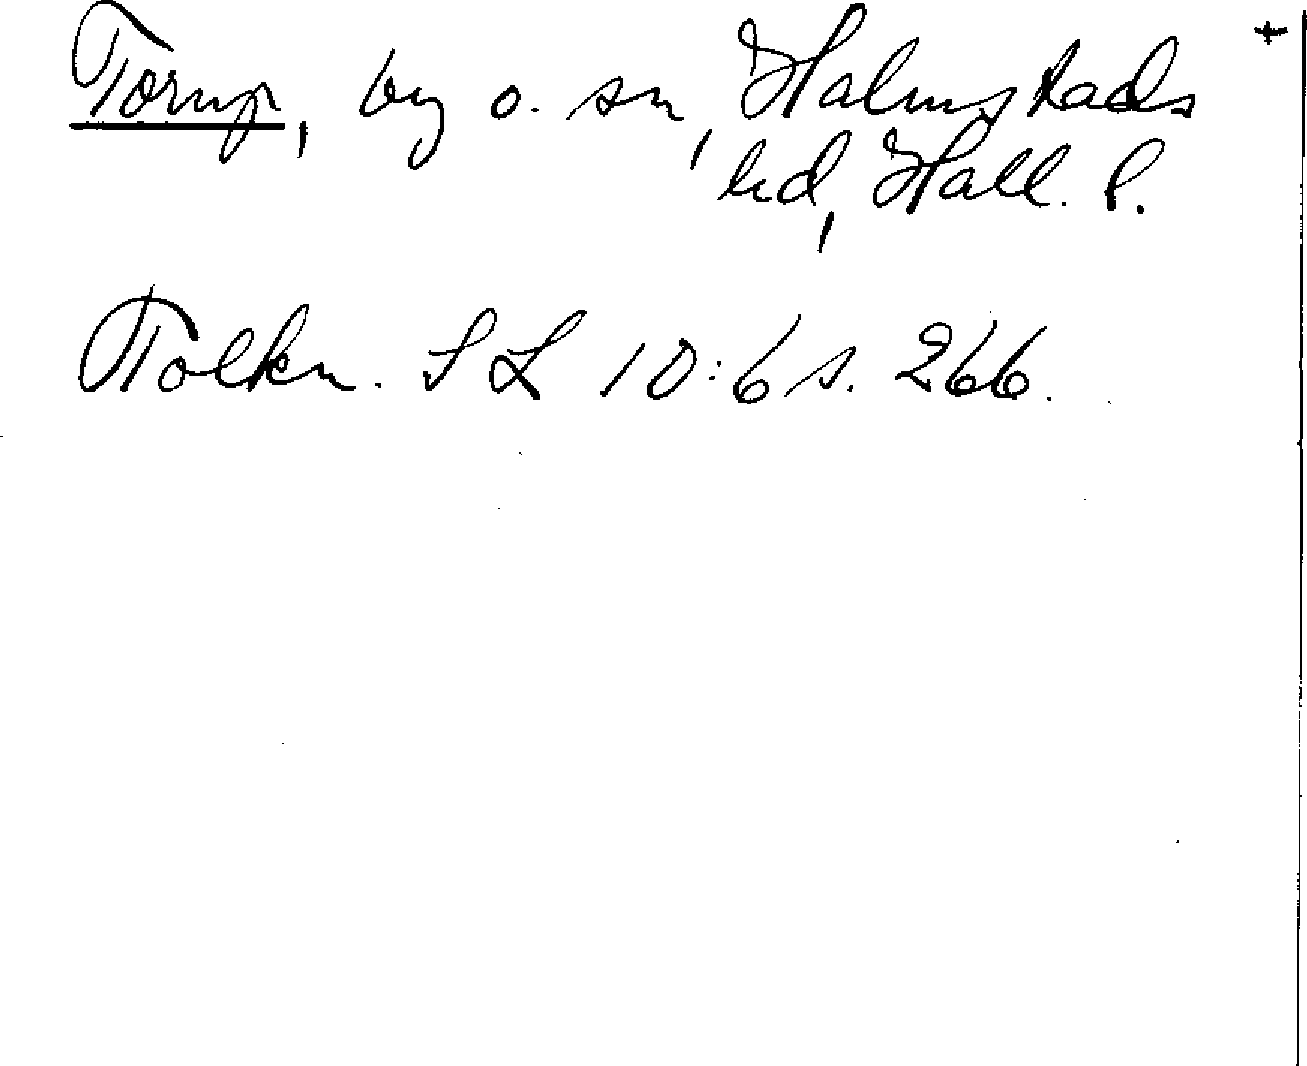 Torup, by o. sn, Halmstads +
hd, Hall. l.
Tolkn. SL 10:6 s. 266.